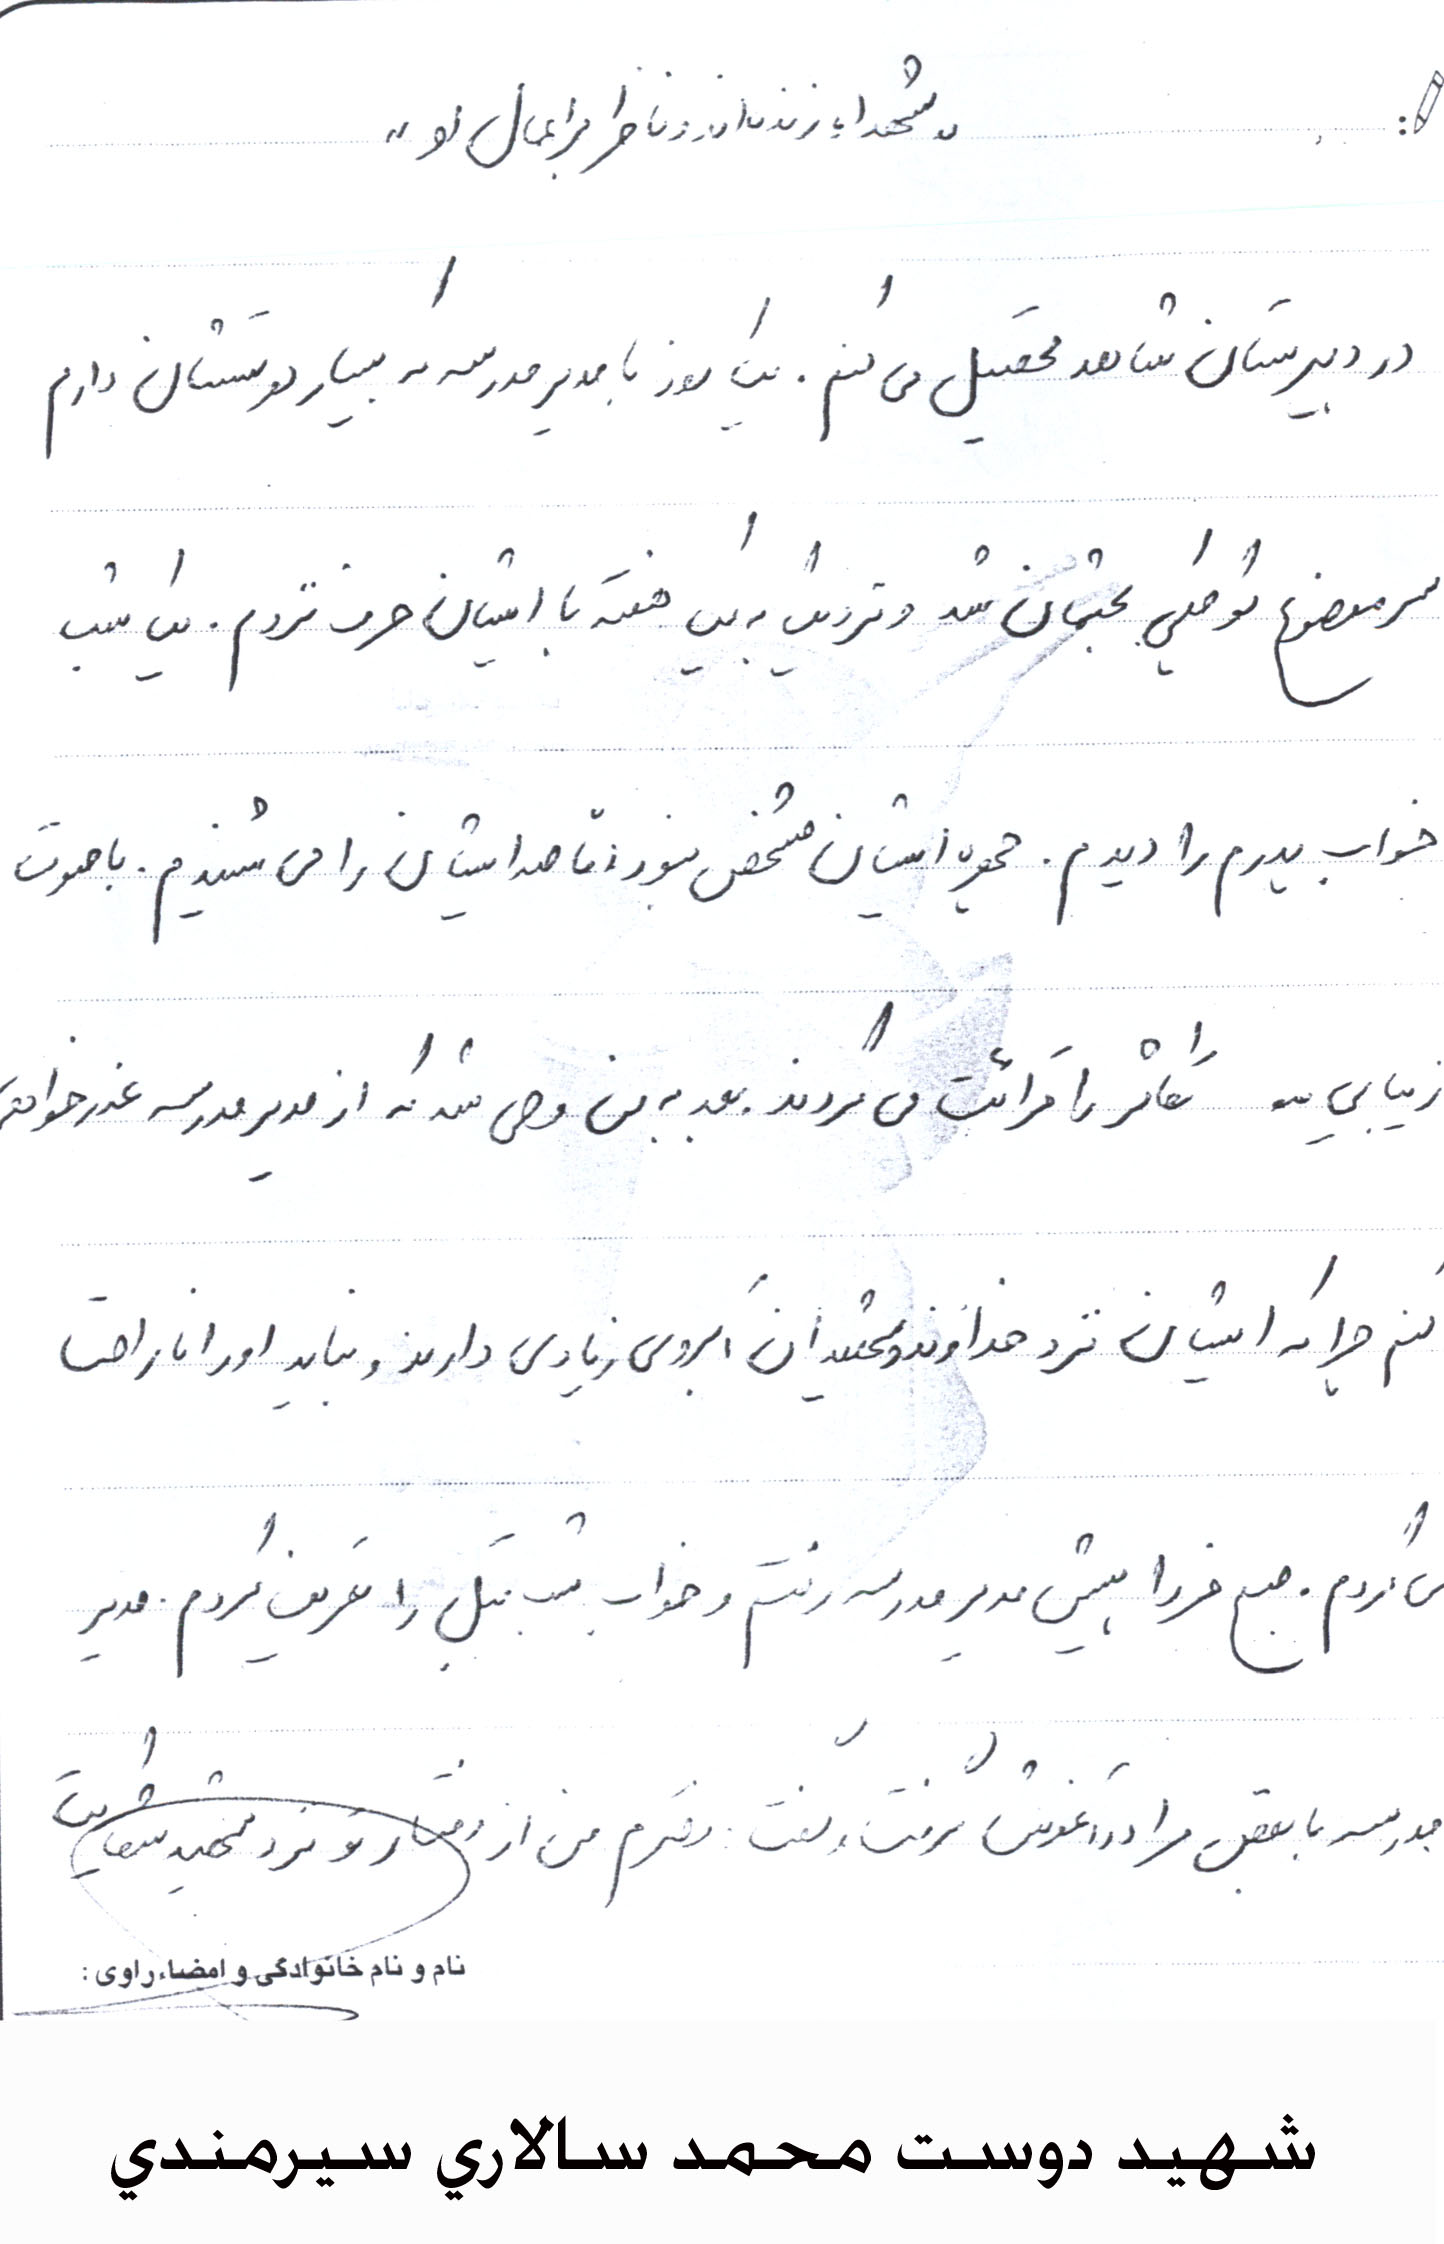 « شهدا زنده‌اند و ناظر بر اعمال تو »
در دبیرستان شاهد تحصیل می کنم . یک روز با مدیر مدرسه که بسیار دوستشان دارم
سر موضوع کوچکی بحثمان شد و نزدیک به یک هفته با ایشان حرف نزدم . یک شب
خواب پدرم را دیدم . چهره ایشان مشخص نبود امّا صدایشان را می شنیدم . با صوت
زیبایی سوره تکاثر را قرائت می کردند . بعد به من وحی شد که از مدیر مدرسه عذرخواهی
کنم چرا که ایشان نزد خداوند و شهیدان آبروی زیادی دارند و نباید او را ناراحت
می کردم . صبح فردا پیش مدیر مدرسه رفتم و خواب شب قبل را تعریف کردم . مدیر
مدرسه با بغض مرا در آغوش گرفت و گفت : دخترم من از رفتار تو نزد شهید شکایت
نام و نام خانوادگی و امضاء راوی :
شهيد دوست محمد سالاري سيرمندي